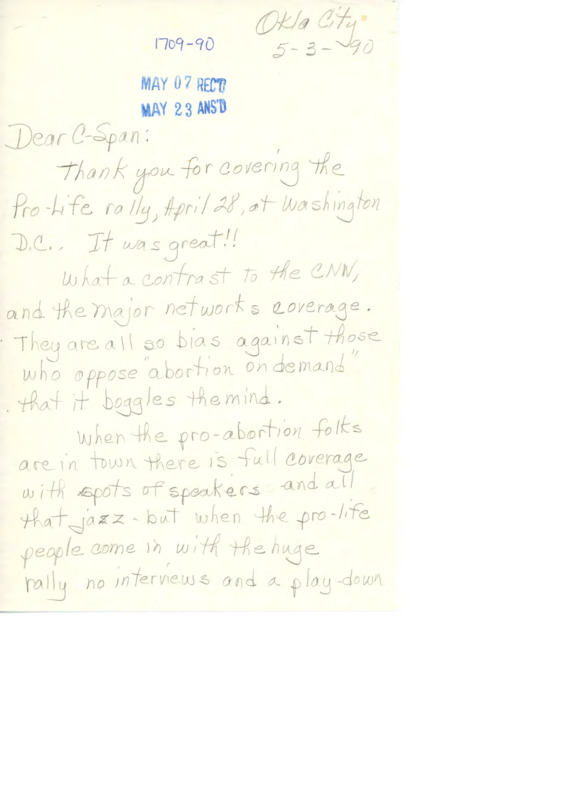 Okla City
1709-90
5-3-90
MAY 07 REC'D
MAY 23 ANS'D
Dear C-Span:
Thank you for covering the
Pro-Life rally, April 28, at Washington
D.C.. It was great!!
What a contrast to the CNN,
and the major networks coverage.
They are all so bias against those
who oppose "abortion on demand"
that it boggles the mind.
When the pro-abortion folks
are in town there is full coverage
with spots of speakers and all
that jazz - but when the pro-life
people come in with the huge
rally no interviews and a play-down